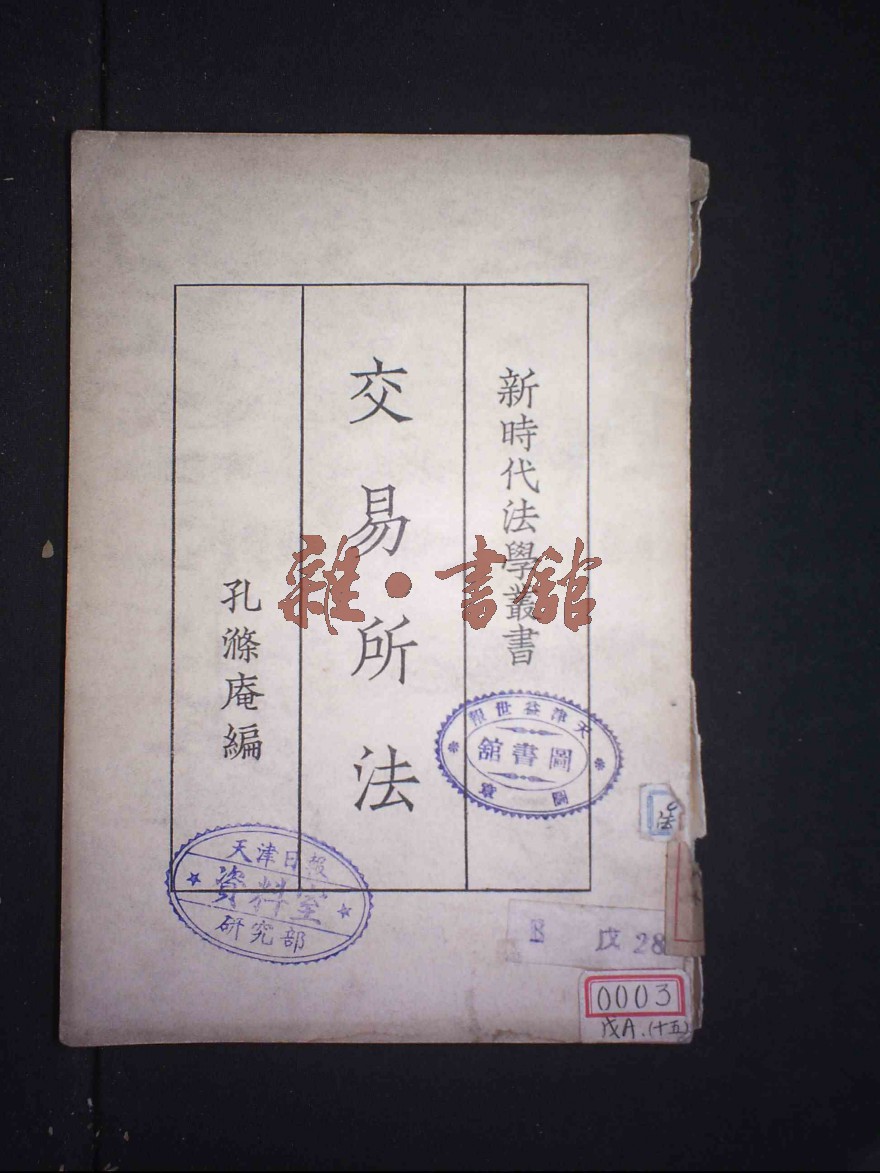 新時代法學叢書
交易所法
孔滌庵編
雜·書館
天津益世報
圖書館
天津日報
資料室
研究部
B 戊 28
0003
戊A.(十五)
法